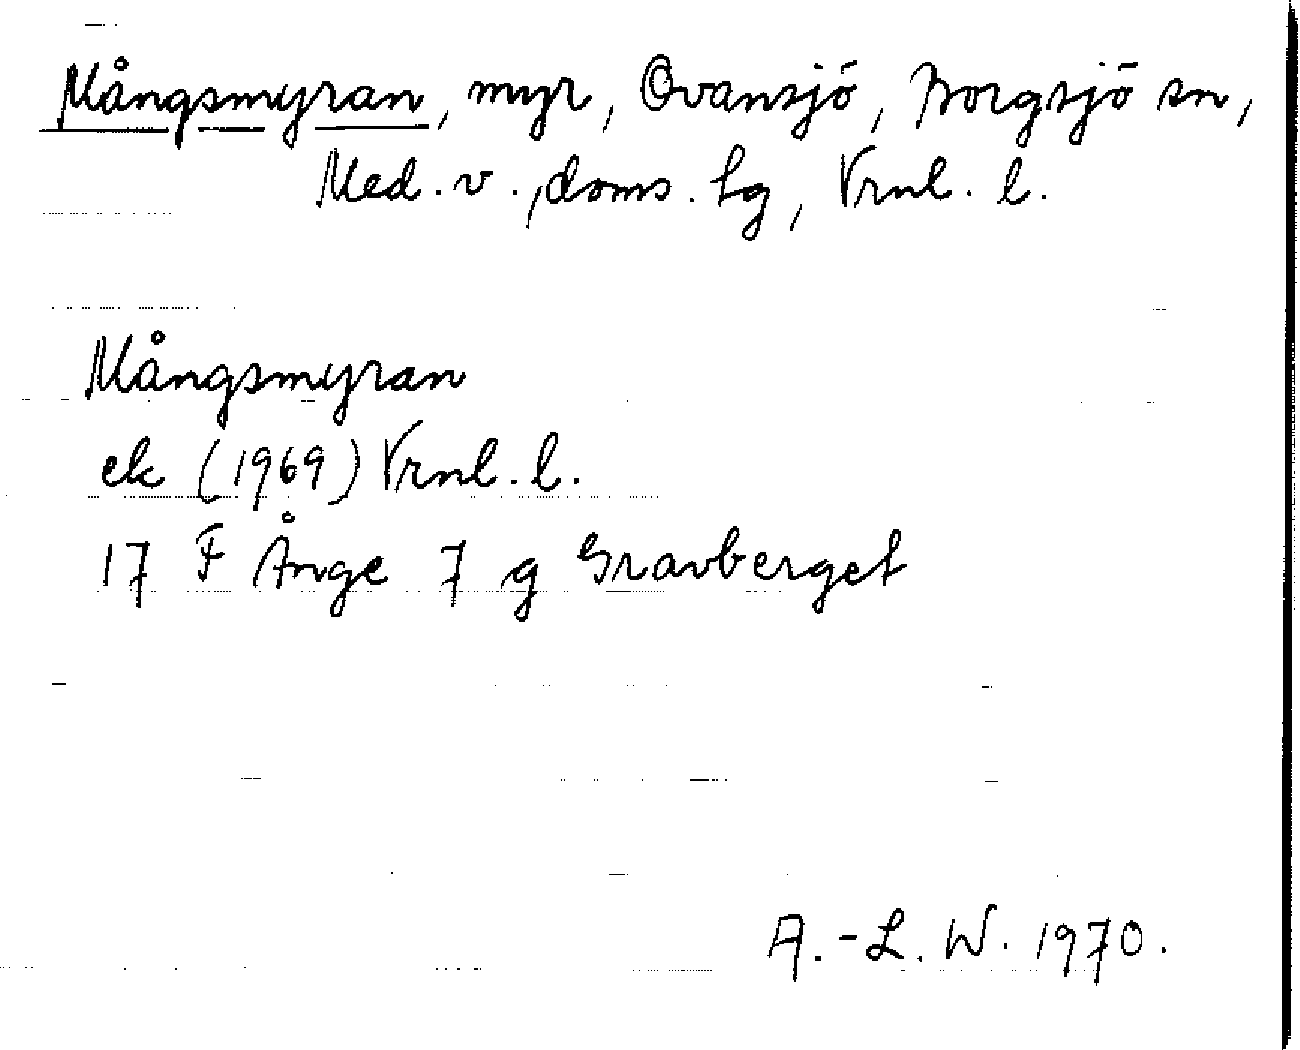 Mångsmyran, myr, Ovansjö, Borgsjö sn,
Med. v., doms. hg, Vrnl. l.
Mångsmyran
ek (1969) Vrnl. l.
17 F Ånge 7 g Gravberget
A.-L. W. 1970.